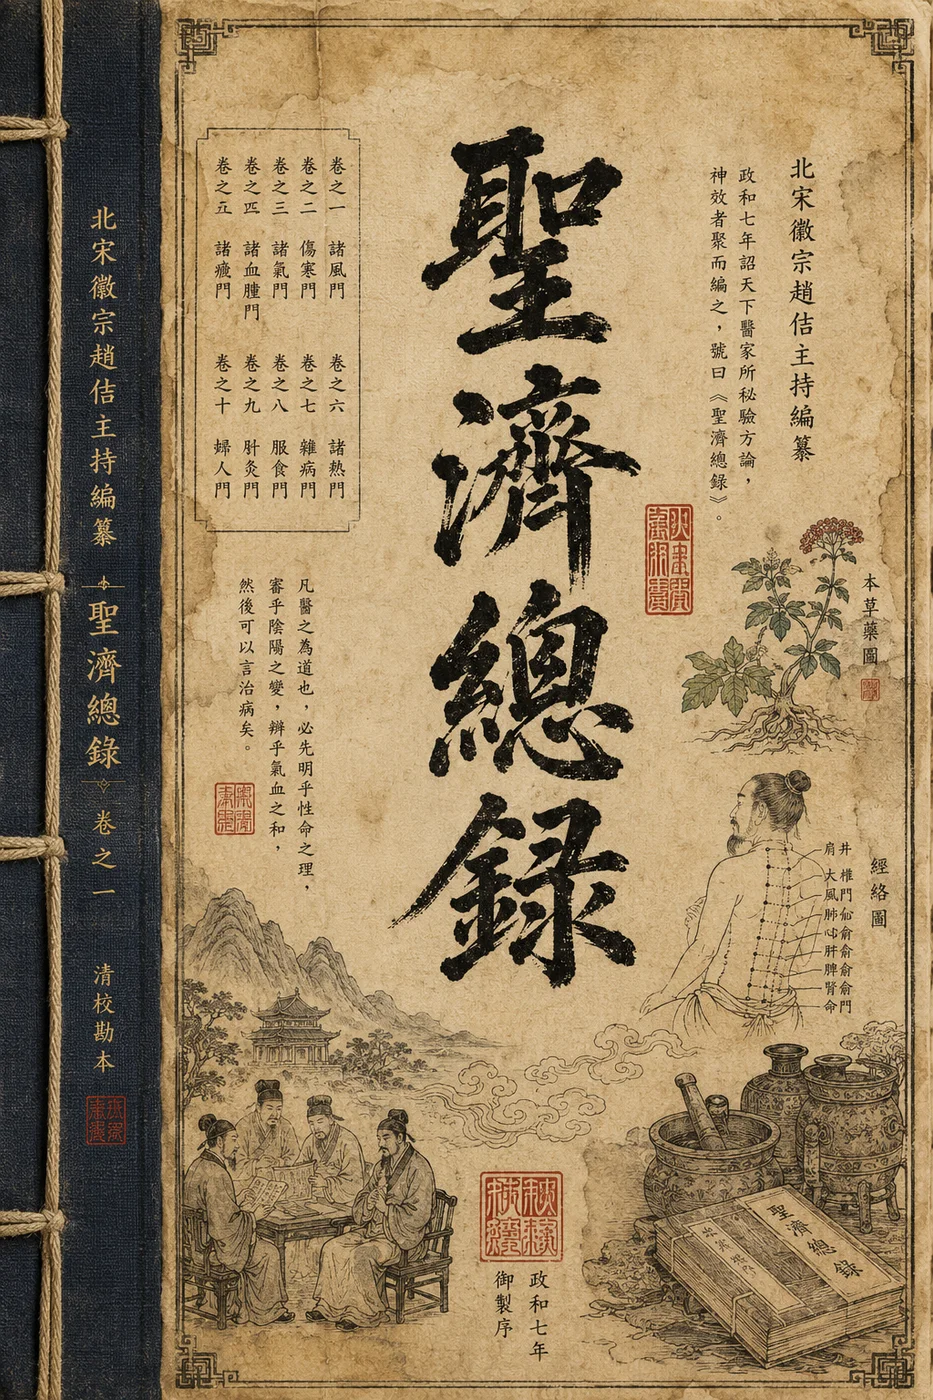 北宋徽宗趙佶主持編纂
聖濟總錄
卷之一
清校勘本
北宋徽宗趙佶主持編纂
政和七年詔天下醫家所秘驗方論，
神效者聚而編之，號曰《聖濟總錄》。
聖濟總録
卷之一 諸風門
卷之二 傷寒門
卷之三 諸氣門
卷之四 諸血腫門
卷之五 諸瘧門
卷之六 諸熱門
卷之七 雜病門
卷之八 服食門
卷之九
卷之十 婦人門
凡醫之為道也，必先明乎性命之理，
審乎陰陽之變，辨乎氣血之和，
然後可以言治病矣。
本草藥圖
經絡圖
肩井
大椎
風門
肺俞
心俞
肝俞
脾俞
腎俞
命門
聖濟總錄
政和七年
御製序